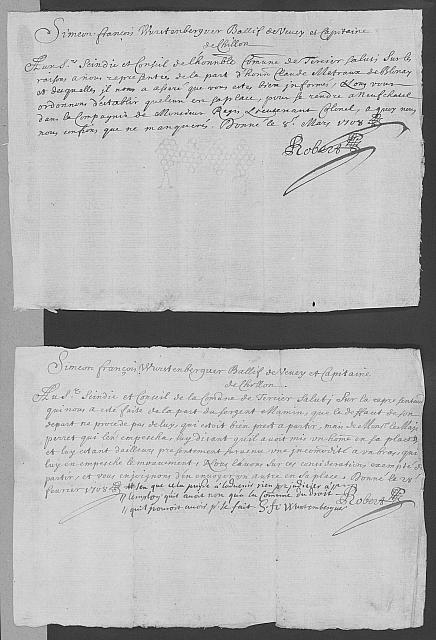 Simeon François Wurstenberguer Ballif de Vevey et Capitaine
de Chillon
Aux Srs. Scindic et Conseil de l'honnoble Comune de Tercier Salut; Sur les
raisons a nous representée de la part d'honn Claude Metraux de Blonay
et desquelles il nous a assuré que vous etes bien informés, Nous vous
ordonnons d'etablir quelcun en sa place, pour se rendre a Neufchatel
dans la Compagnie de Monsieur Regis Lieutenant Colonel, a quoy nous
nous confions que ne manquerés. Donné le 8e. Mars 1708
Robert
Simeon François Wurstenberguer Ballif de Vevey et Capitaine
de Chillon
Aux Srs. Scindic et Conseil de la Comune de Tercier Salut; Sur la representation
qui nous a eté faite de la part du sergent Mamin, que le deffaut de son
depart ne procede pas de luy, qui etoit bien prest a partir, mais de Monsr. le Major
perret qui l'en empescha, luy disant qu'il avoit mis un homme en sa place
et luy estant d'ailleurs presentement survenu une incomodité a un bras, qui
luy en empesche le mouvement, Nous l'avons sur ces considerations exempté de
partir, et vous enjoignons d'en envoyer un autre en sa place. Donné le 28e.
fevrier 1708
sen que cela puisse a l'advenir rien prejudicier a
l'employ qu'il avoit non que la Comune du droit
qu'il pouroit avoir p' le fait S. fr Wurstenberguer
Robert